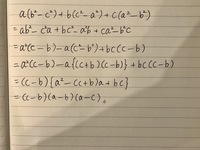 a(b²-c²)+b(c²-a²)+c(a²-b²)
=ab²-c²a+bc²-a²b+ca²-b²c
=a²(c-b)-a(c²-b²)+bc(c-b)
=a²(c-b)-a{(c+b)(c-b)}+bc(c-b)
=(c-b){a²-(c+b)a+bc}
=(c-b)(a-b)(a-c)。